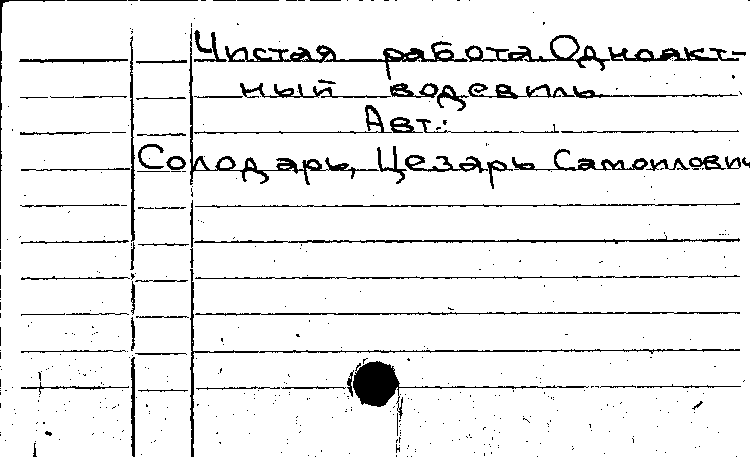 Чистая работа. Одноакт-
ный водевиль
Авт.:
Солодарь, Цезарь Самойлович